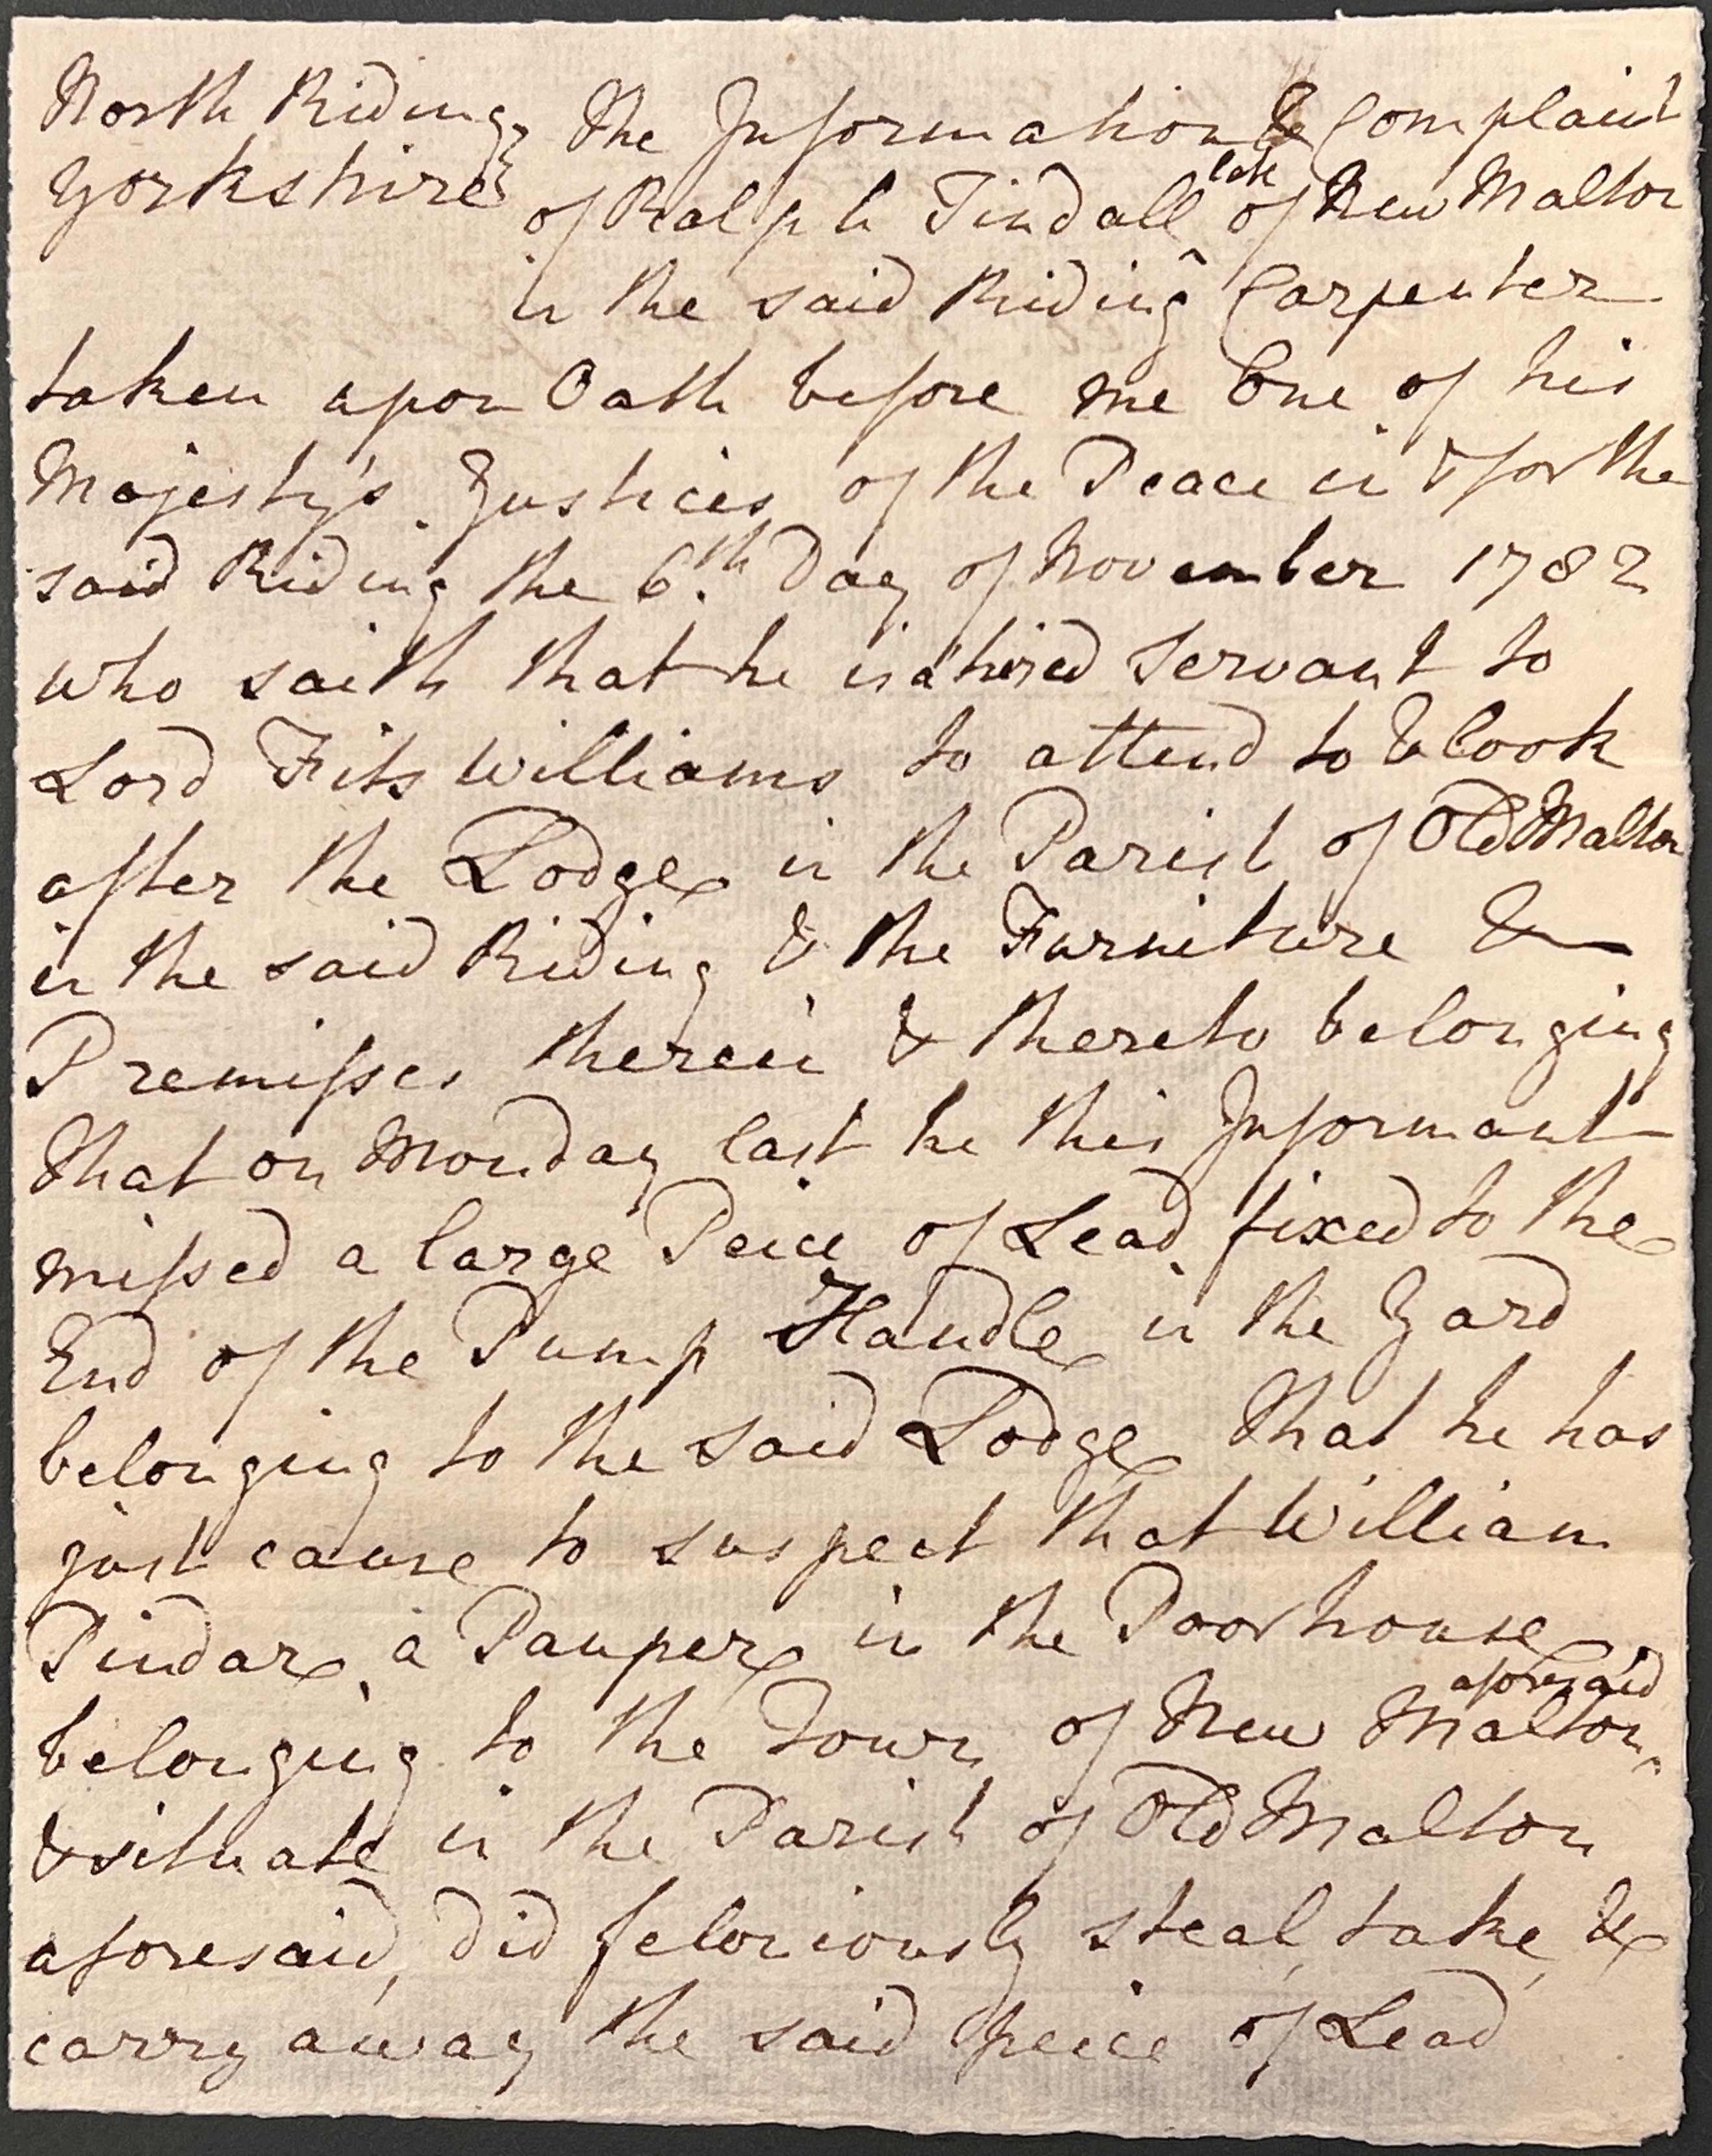 North Riding } The Information & Complaint
Yorkshire } of Ralph Tindall late of New Malton
in the said Riding Carpenter
taken upon Oath before me One of his
Majesty's Justices of the Peace in & for the
said Riding the 6th. Day of November 1782
who saith that he is a hired Servant to
Lord Fits Williams to attend to & look
after the Lodge in the Parish of Old Malton
in the said Riding & the Furniture &
Premisses therein & thereto belonging
That on Monday last he this Informant
missed a large Peice of Lead fixed to the
End of the Pump Handle in the Yard
belonging to the said Lodge That he has
just cause to suspect that William
Pindar, a Pauper in the Poorhouse
belonging to the Town of New Malton aforesaid
& situate in the Parish of Old Malton
aforesaid, did feloniously steal, take, &
carry away the said peice of Lead